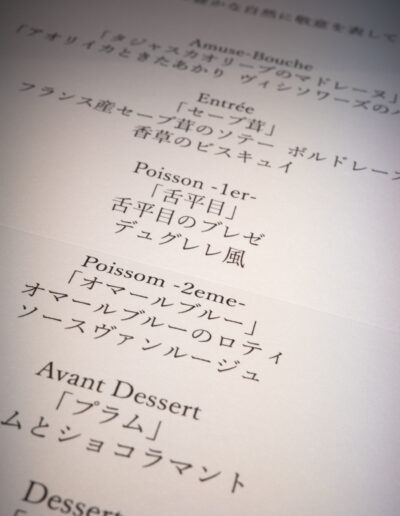 かな自然に敬意を表して
Amuse-Bouche
「タジャスカオリーブのマドレーヌ」
「アオリイカときたあかり ヴィシソワーズの
Entrée
「セープ茸」
フランス産セープ茸のソテー ボルドレーズ
香草のビスキュイ
Poisson -1er-
「舌平目」
舌平目のブレゼ
デュグレレ風
Poissom -2eme-
「オマールブルー」
オマールブルーのロティ
ソースヴァンルージュ
Avant Dessert
「プラム」
ムとショコラマント
Dessert